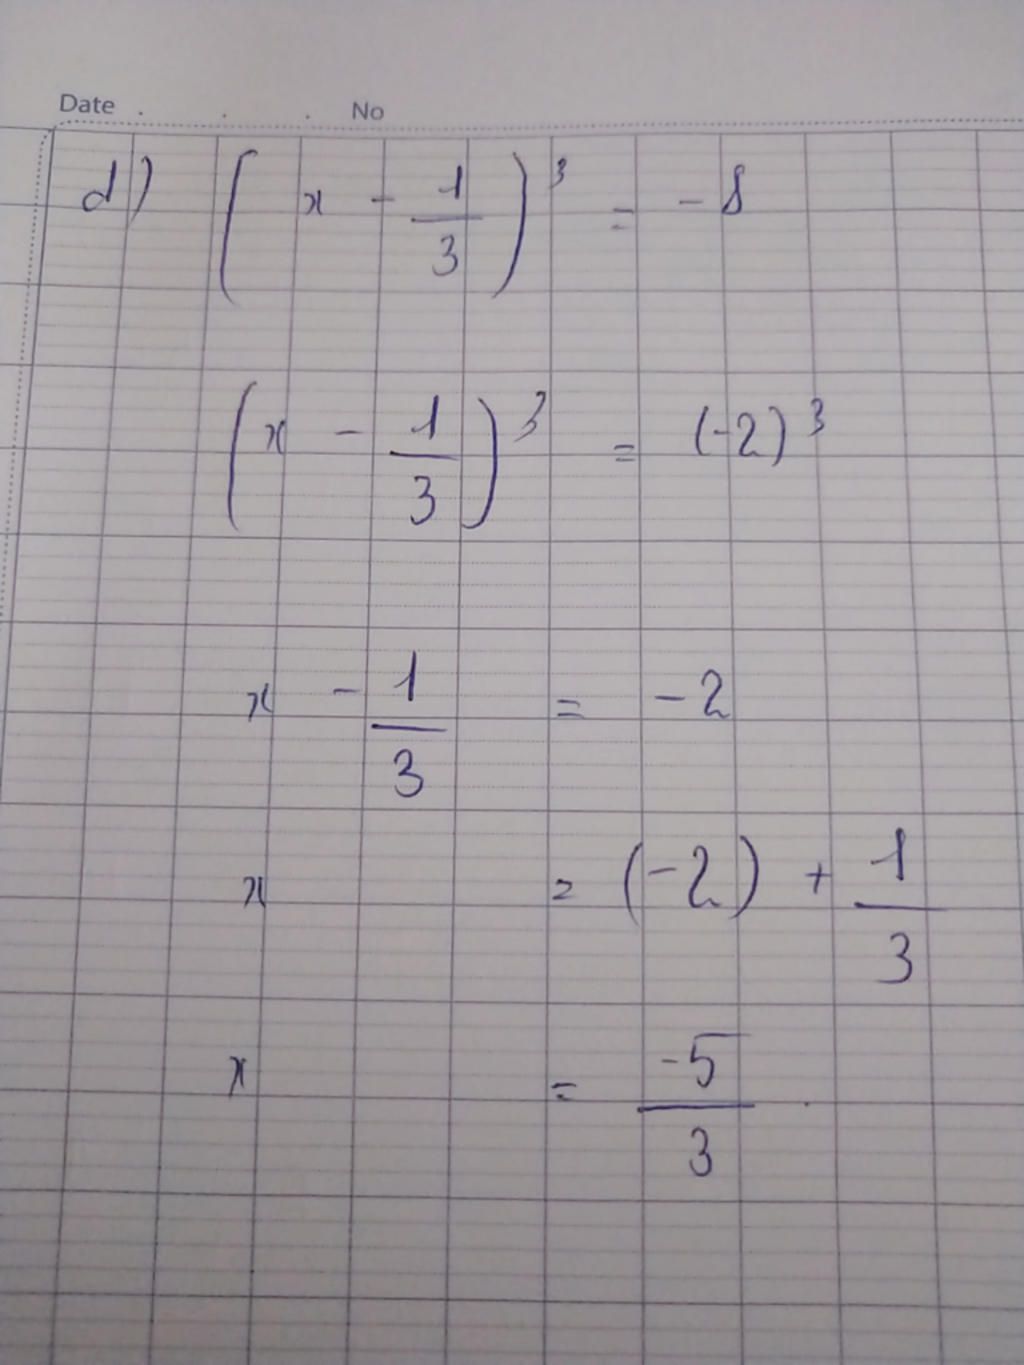 Date . . . No
d) ( x - 1/3 )³ = - 8
( x - 1/3 )³ = (-2)³
x - 1/3 = - 2
x = (-2) + 1/3
x = -5/3 .